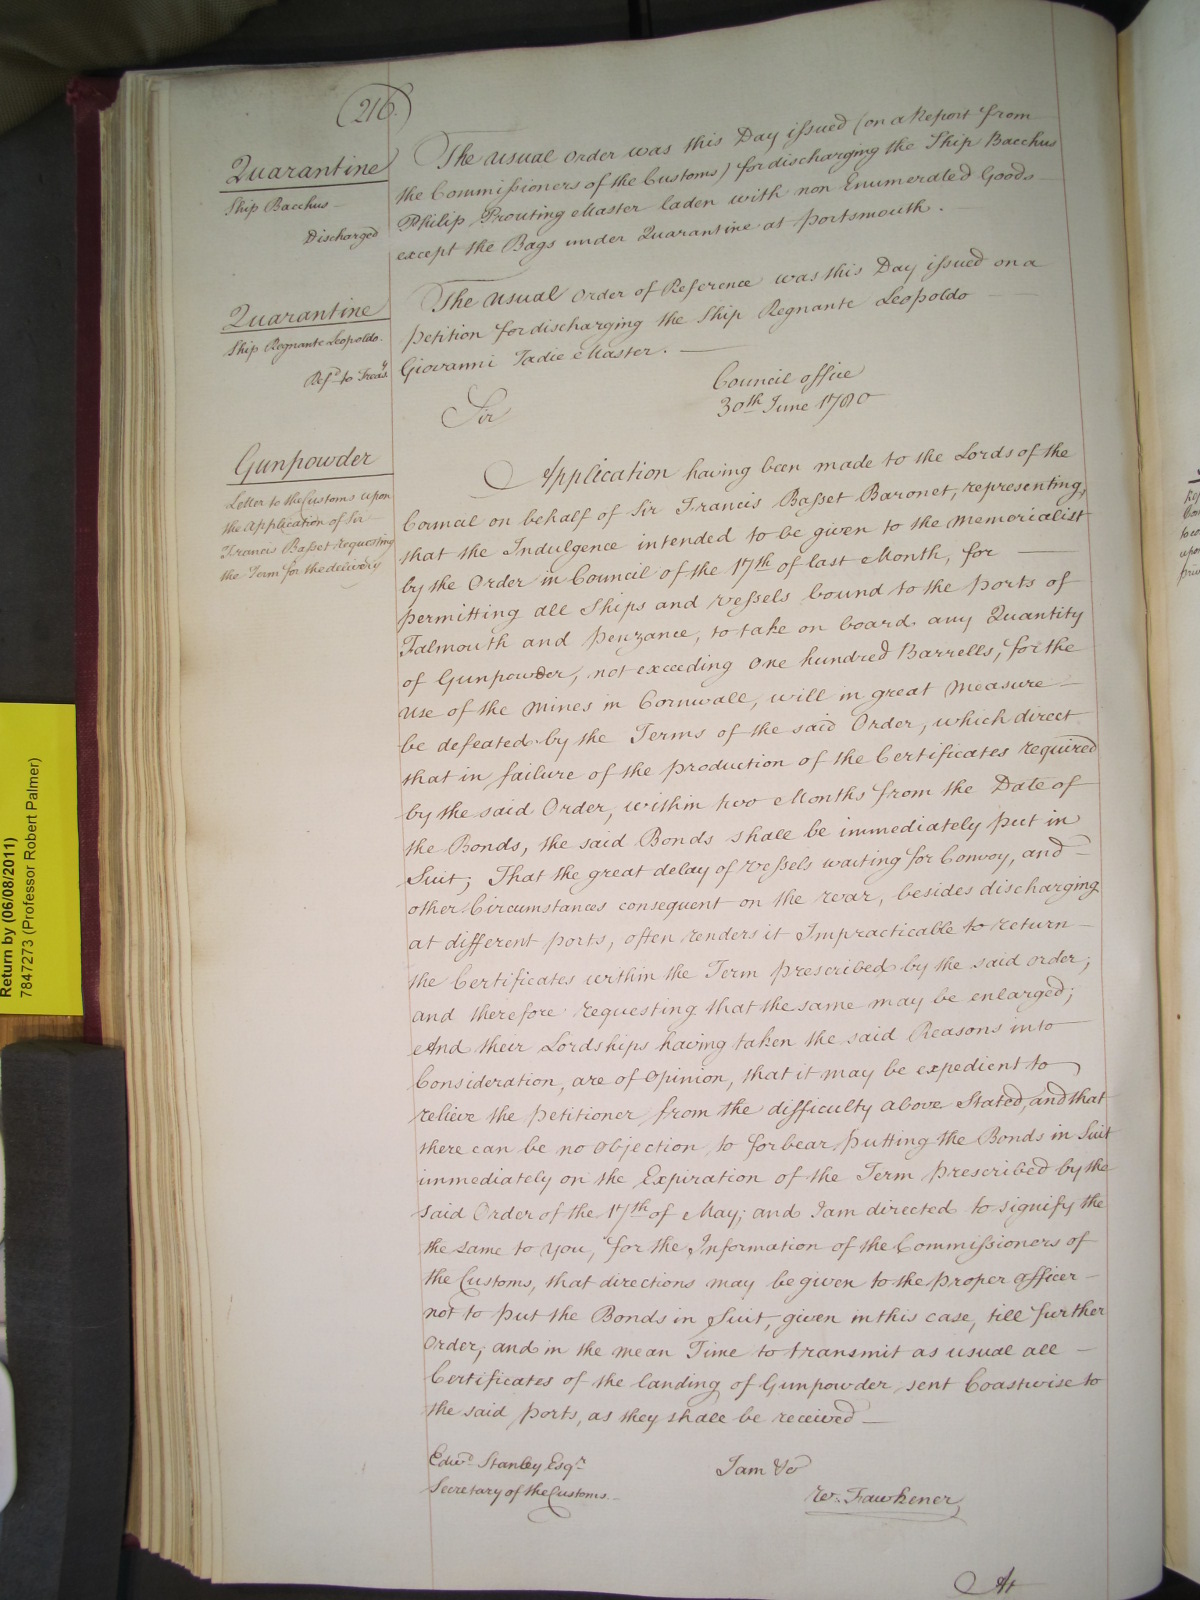 216.
Quarantine
Ship Bacchus
Discharged
The usual order was this Day issued (on a Report from
the Commissioners of the Customs) for discharging the Ship Bacchus
Philip Prouting Master laden with non Enumerated Goods
except the Bags under Quarantine at Portsmouth.
Quarantine
Ship Regnante Leopoldo.
Ref.d to Treas.y
The usual Order of Reference was this Day issued on a
Petition for discharging the Ship Regnante Leopoldo
Giovanni Tadie Master.
Council office
30th June 1780
Sir
Gunpowder
Letter to the Customs upon
the Application of Sir
Francis Basset Requesting
the Term for the delivery
Application having been made to the Lords of the
Council on behalf of Sir Francis Basset Baronet, representing,
that the Indulgence intended to be given to the Memorialist
by the Order in Council of the 17th of last Month, for
permitting all Ships and Vessels bound to the Ports of
Falmouth and Penzance, to take on board any Quantity
of Gunpowder, not exceeding One hundred Barrells, for the
use of the Mines in Cornwall, will in great Measure
be defeated by the Terms of the said Order, which direct
that in failure of the production of the Certificates required
by the said Order, within two Months from the Date of
the Bonds, the said Bonds shall be immediately put in
Suit; That the great delay of Vessels waiting for Convoy, and
other Circumstances consequent on the war, besides discharging
at different ports, often renders it Impracticable to return
the Certificates within the Term prescribed by the said order;
and therefore requesting that the same may be enlarged;
And their Lordships having taken the said Reasons into
Consideration, are of Opinion, that it may be expedient to
relieve the Petitioner from the difficulty above Stated, and that
there can be no Objection to forbear putting the Bonds in Suit
immediately on the Expiration of the Term prescribed by the
said Order of the 17th of May; and I am directed to signify the
the same to you, for the Information of the Commissioners of
the Customs, that directions may be given to the proper officer
not to put the Bonds in Suit, given in this case, till further
Order; and in the mean Time to transmit as usual all
Certificates of the landing of Gunpowder sent Coastwise to
the said Ports, as they shall be received
Edw.d Stanley Esq.r
Secretary of the Customs
I am &c
W. Fawkener
At
Return by (06/08/2011)
7847273 (Professor Robert Palmer)